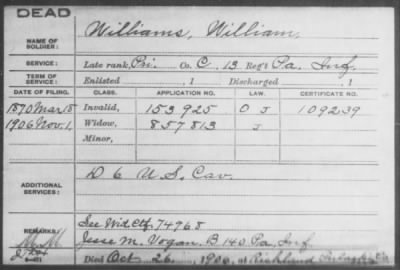 DEAD
NAME OF SOLDIER: Williams, William
SERVICE: Late rank, Pri. Co. C, 13 Reg't Pa. Inf.
TERM OF SERVICE: Enlisted , 1 Discharged , 1
DATE OF FILING. CLASS. APPLICATION NO. LAW. CERTIFICATE NO.
1870 Mar 18 Invalid, 153 925 O J 109239
1906 Nov. 1, Widow, 857 813 J
Minor,
ADDITIONAL SERVICES: D 6 U.S. Cav.
REMARKS: See Wid. Ctf. 74968
Jesse M. Vogan. B 140 Pa. Inf.
Died Oct. 26, 1906, at Richland